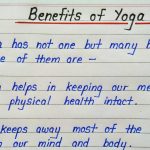 Benefits of Yoga
has not one but many b
e of them are –
helps in keeping our me
physical health intact.
keeps away most of the
our mind and body.